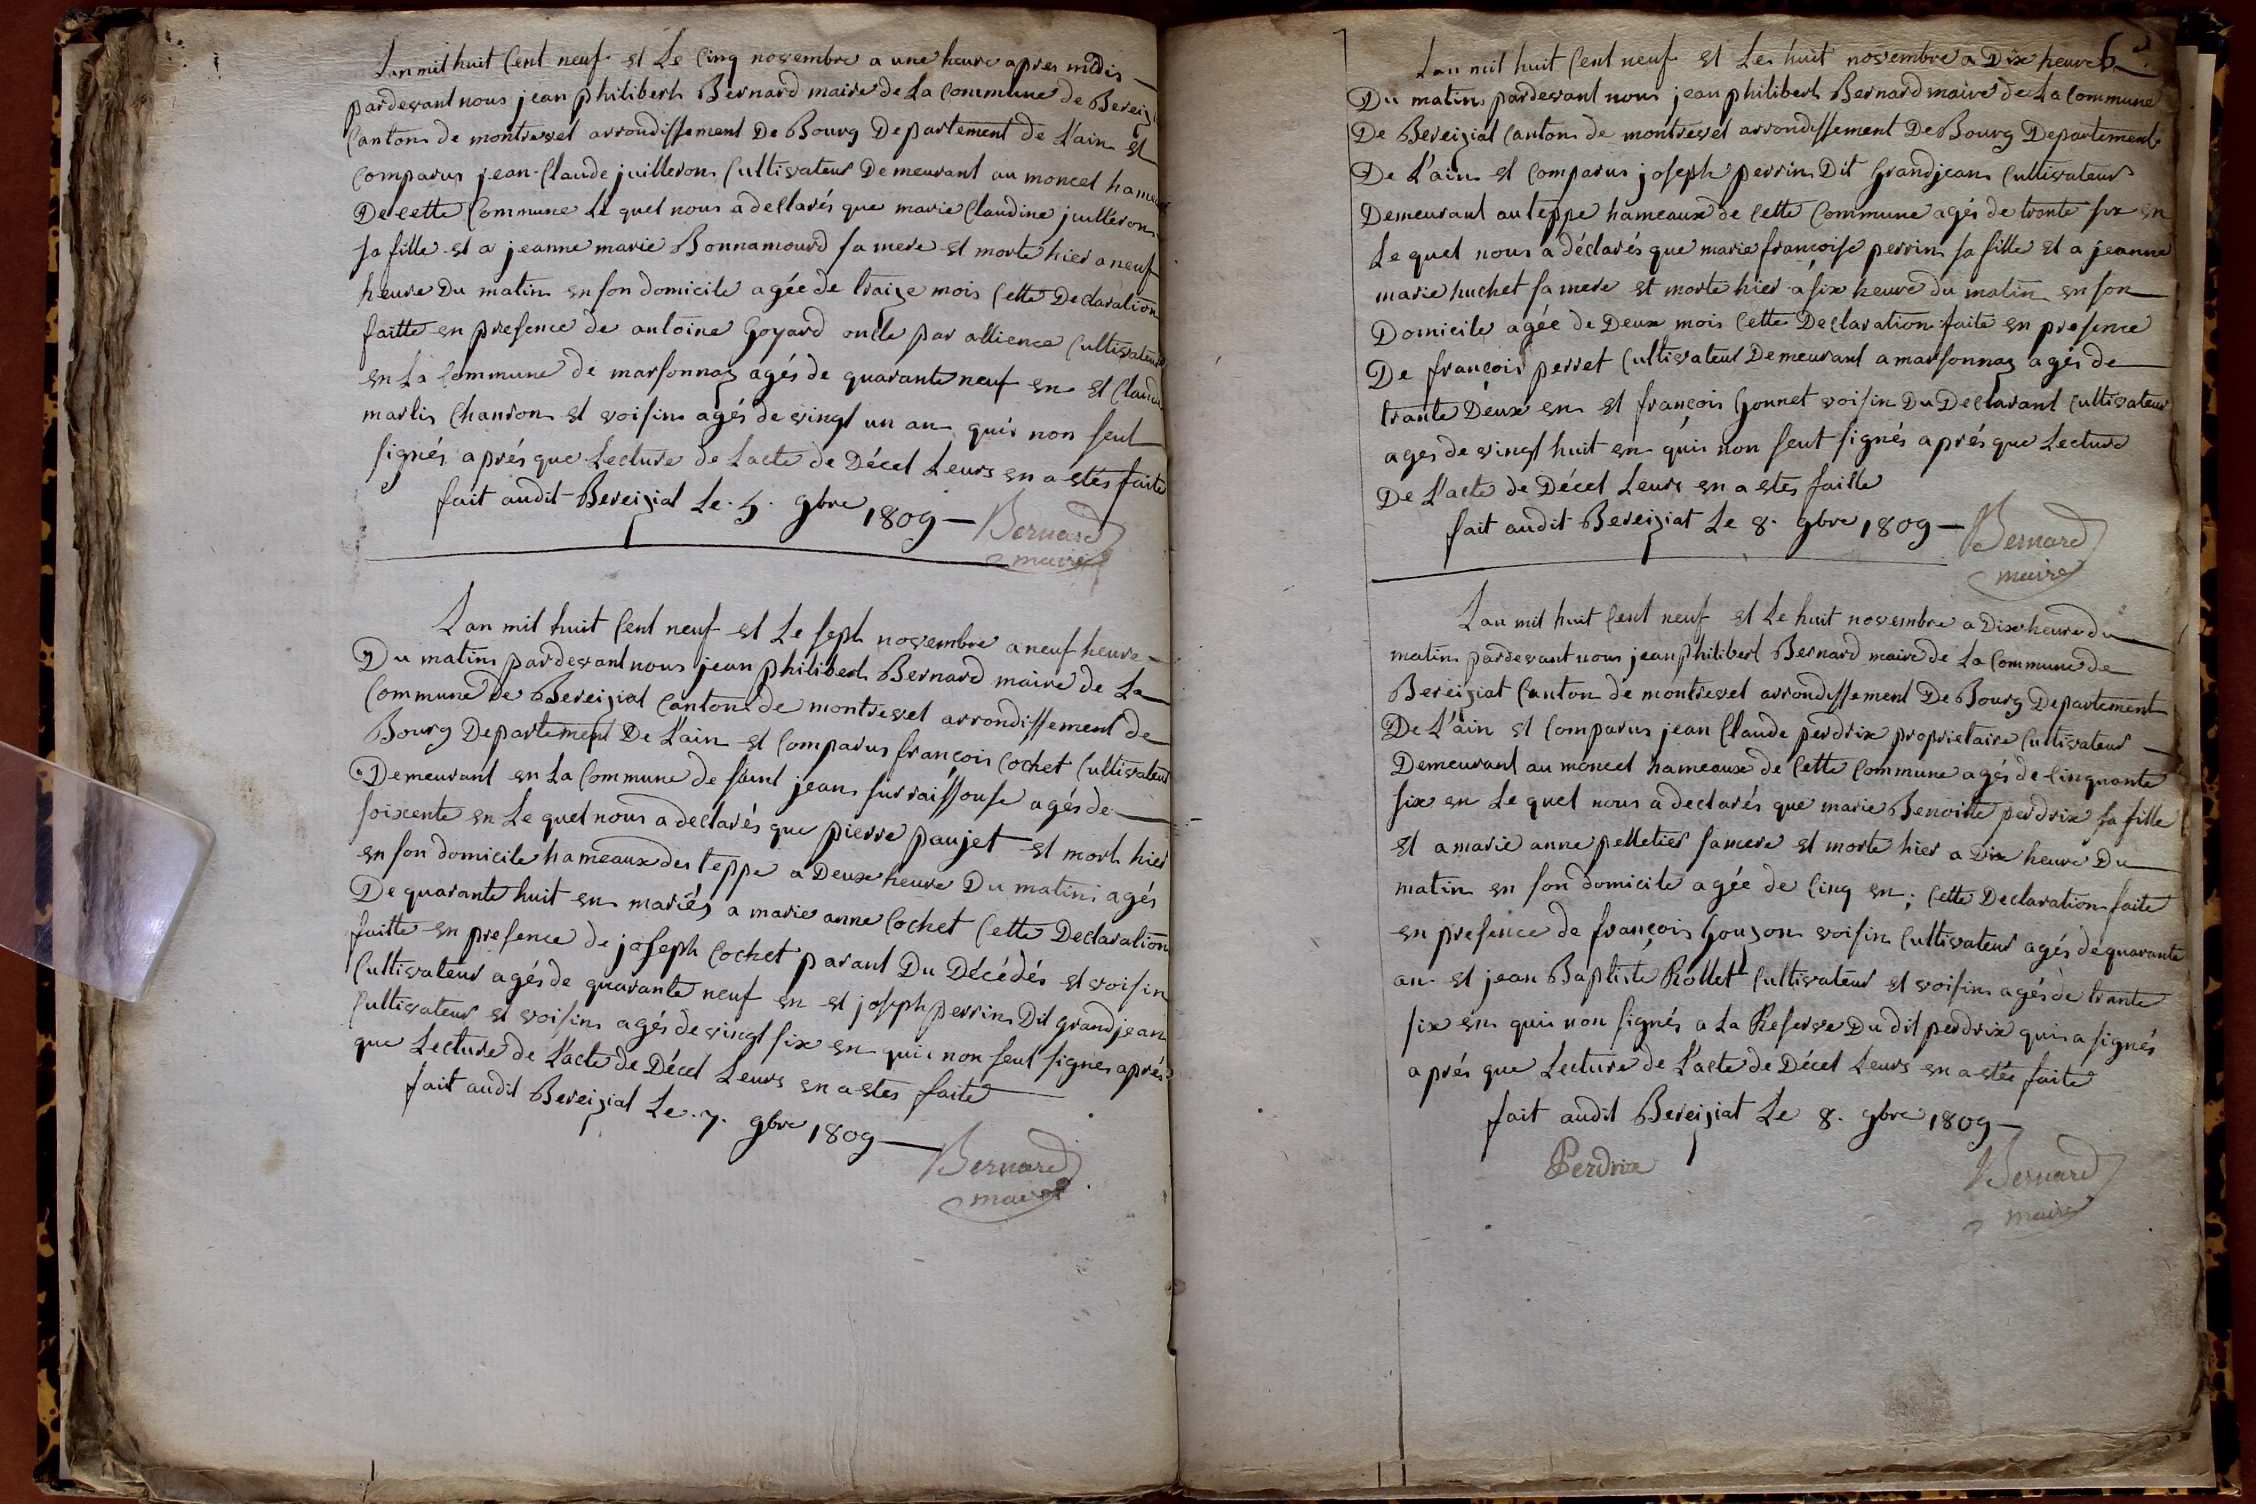 Lan mil huit Cent neuf et Le Cinq novembre a une heure apres midis
pardevant nous jean philibert Bernard maire de La Commune de Bereiz
Canton de montrevel arrondissement De Bourg Departement de L'ain et
Comparus jean Claude juilleron Cultivateur Demeurant au moncel hameau
De Cette Commune Le quel nous a declarés que marie Claudine juilleron
sa fille et a jeanne marie Bonnamourd sa mere et morte hier a neuf
heure Du matin en son domicile agée de traize mois Cette Declaration
faitte en presence de antoine Goyard oncle par allience Cultivateur
en La Commune de marsonnaz agés de quarante neuf en et Claude
marlis Chanron et voisin agés de vingt un an qui non seut
signés aprés que Lecture de Lacte de Décet Leurs en a etés faite
fait audit Bereiziat Le 5. 9bre 1809
Bernard
maire
Lan mil huit Cent neuf et Le sept novembre a neuf heure
Du matin pardevant nous jean philibert Bernard maire de La
Commune de Bereiziat Canton de montrevel arrondissement de
Bourg Departement De L'ain et Comparus françois Cochet Cultivateur
Demeurant en La Commune de saint jean sur raissouse agés de
soixente en Le quel nous a declarés que pierre paujet et mort hier
en son domicile hameaux des teppe a Deux heure Du matin agés
De quarante huit en mariés a marie anne Cochet Cette Declaration
faitte en presence de joseph Cochet parant Du Décédés et voisin
Cultivateur agés de quarante neuf en et joseph perrin Dit grandjean
Cultivateur et voisin agés de vingt six en qui non seut signés aprés
que Lecture de L'acte de Décet Leurs en a etés faite
fait audit Bereiziat Le 7. 9bre 1809
Bernard
maire
Lan mil huit Cent neuf et Le huit novembre a Dix heure
Du matin pardevant nous jean philibert Bernard maire de La Commune
De Bereiziat Canton de montrevel arrondissement De Bourg Departement
De L'ain et Comparus joseph perrin Dit Grandjean Cultivateur
Demeurant au teppe hameaux de Cette Commune agés de trante six en
Le quel nous a déclarés que marie françoise perrin sa fille et a jeanne
marie huchet sa mere et morte hier a six heure du matin en son
Domicile agée de Deux mois Cette Declaration faite en presence
De françois perret Cultivateur Demeurant a marsonnaz agés de
trante Deux en et françois Gonnet voisin Du Declarant Cultivateur
ages de vingt huit en qui non seut signés aprés que Lecture
De L'acte de Décet Leurs en a etés faitte
fait audit Bereiziat Le 8. 9bre 1809
Bernard
maire
Lan mil huit Cent neuf et Le huit novembre a Dix heure du
matin pardevant nous jean philibert Bernard maire de La Commune de
Bereiziat Canton de montrevel arrondissement De Bourg Departement
De L'ain et Comparus jean Claude perdrix proprietaire Cultivateur
Demeurant au moncel hameaux de Cette Commune agés de Cinquante
six en Le quel nous a declarés que marie Benoitte perdrix sa fille
et a marie anne pelletier sa mere et morte hier a Dix heure Du
matin en son domicile agée de Cinq en; Cette Declaration faite
en presence de françois Gouzon voisin Cultivateur agés de quarante
an et jean Baptiste Rollet Cultivateur et voisin agés de trante
six en qui non signés a La Reserve Du dit perdrix qui a signés
aprés que Lecture de L'acte de Décet Leurs en a etés faite
fait audit Bereiziat Le 8. 9bre 1809
Perdrix
Bernard
maire